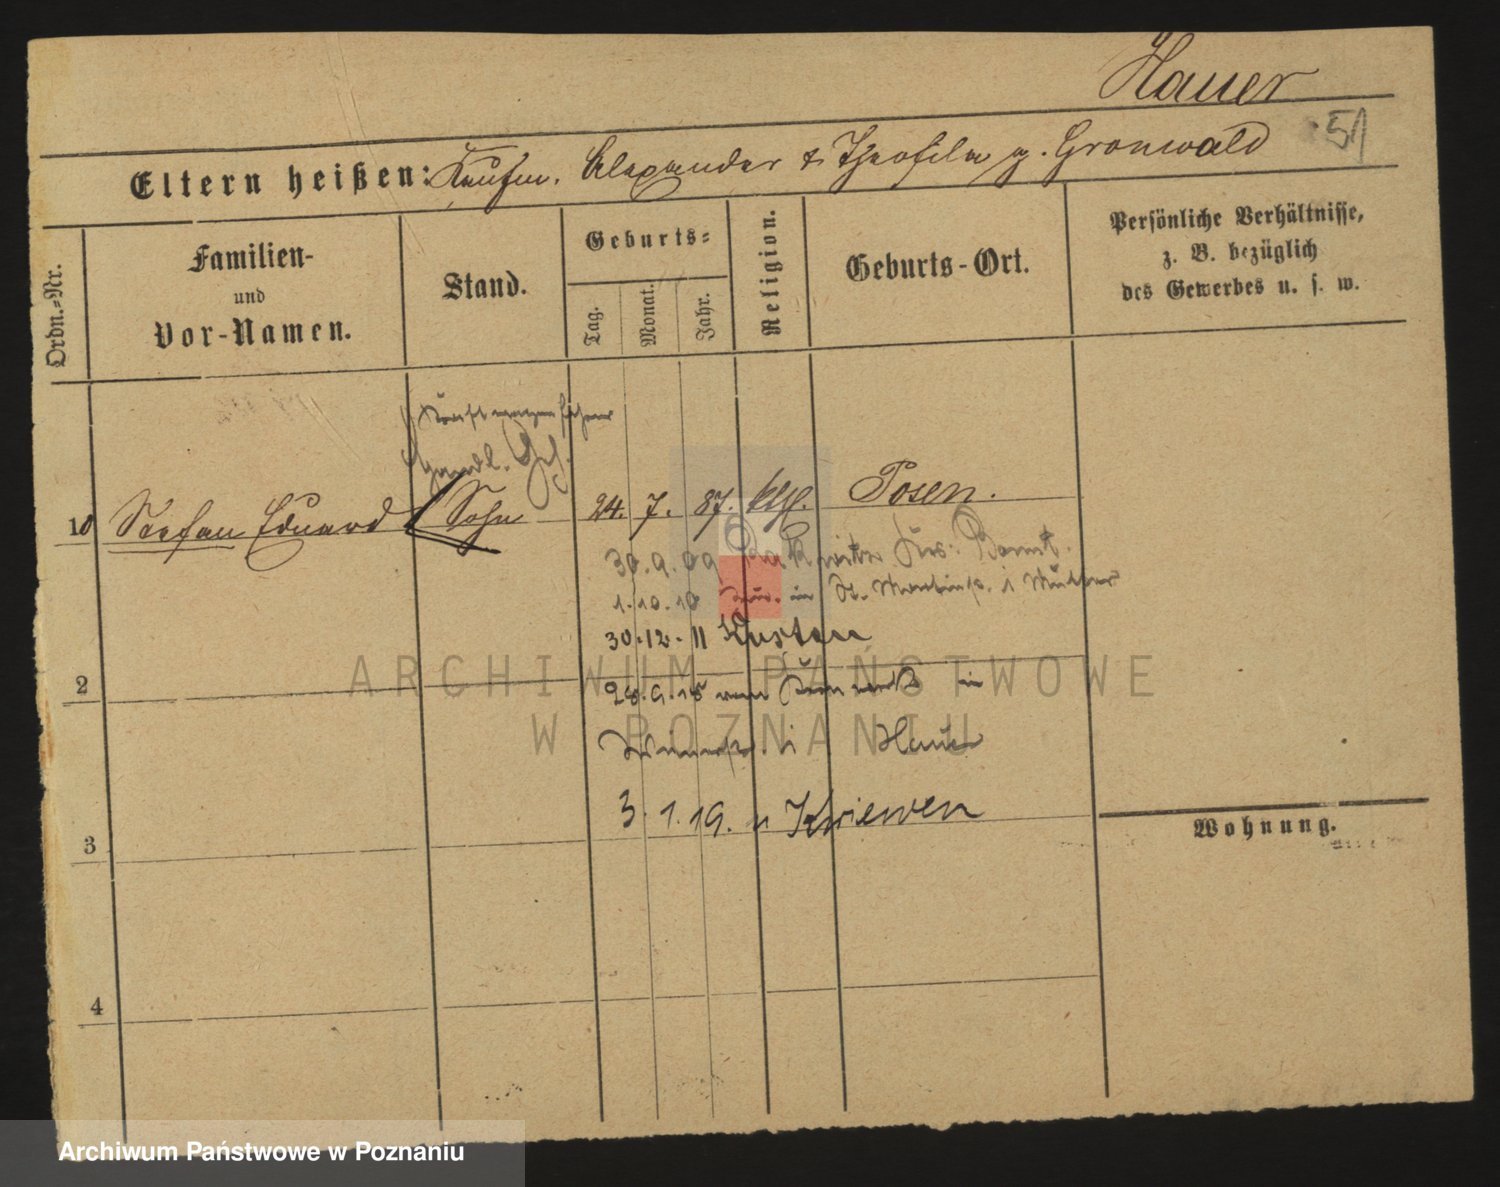 Hauer
51
Eltern heißen: Kaufm. Alexander & Theofila g. Gronwald
Ordn.-Nr.
Familien-
und
Vor-Namen.
Stand.
Geburts-
Tag.
Monat.
Jahr.
Religion.
Geburts-Ort.
Persönliche Verhältnisse,
z. B. bezüglich
des Gewerbes u. s. w.
Handl. Geh.
10 Stefan Eduard Sohn 24. 7. 87. kth. Posen.
30.9.09
1.10.10 in St. Martinstr. i Mutter
30.12.11 Kosten
2
28.9.18 von in
i Hauer
3.1.19. n Kriewen
3
Wohnung.
4
ARCHIWUM PAŃSTWOWE
W POZNANIU
Archiwum Państwowe w Poznaniu